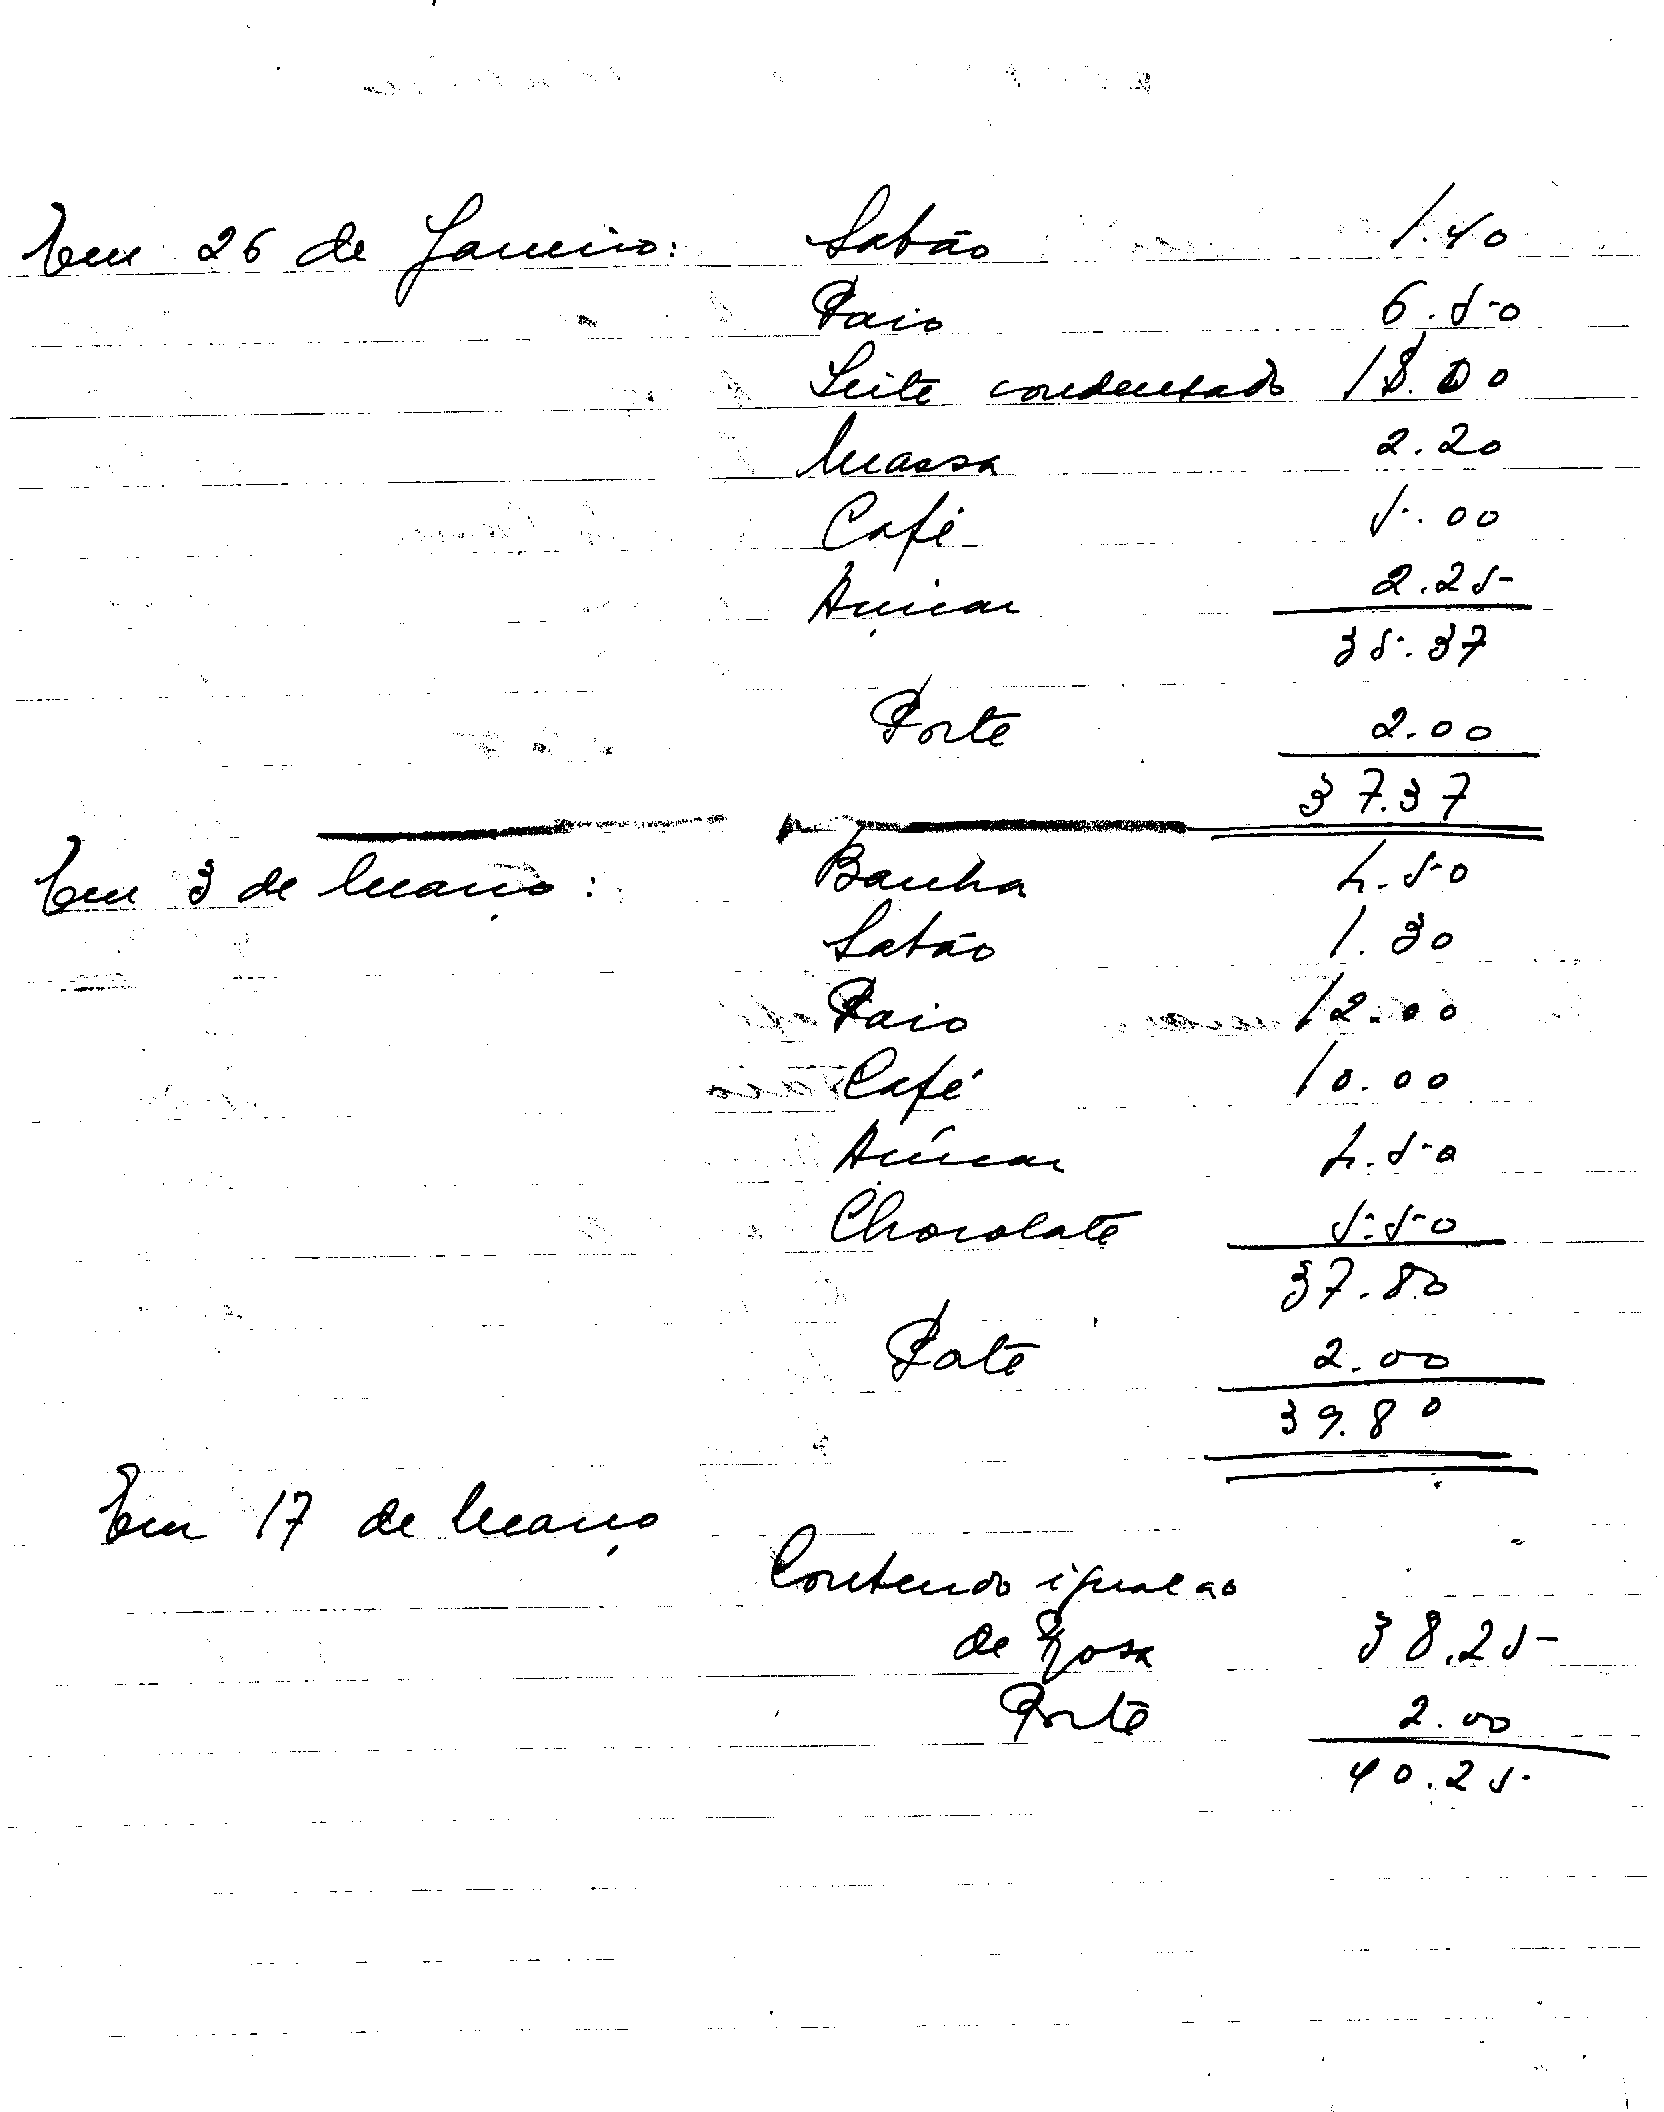 Em 26 de Janeiro: Sabão 1.40
Paio 6.50
Leite condensado 18.00
Massa 2.20
Café 5.00
Açucar 2.25
35.37
Porte 2.00
37.37
Em 3 de Março: Banha 4.50
Sabão 1.30
Paio 12.00
Café 10.00
Açúcar 4.50
Chocolate 5.50
37.80
Porte 2.00
39.80
Em 17 de Março
Contendo igual ao
de Rosa 38.25
Porte 2.00
40.25